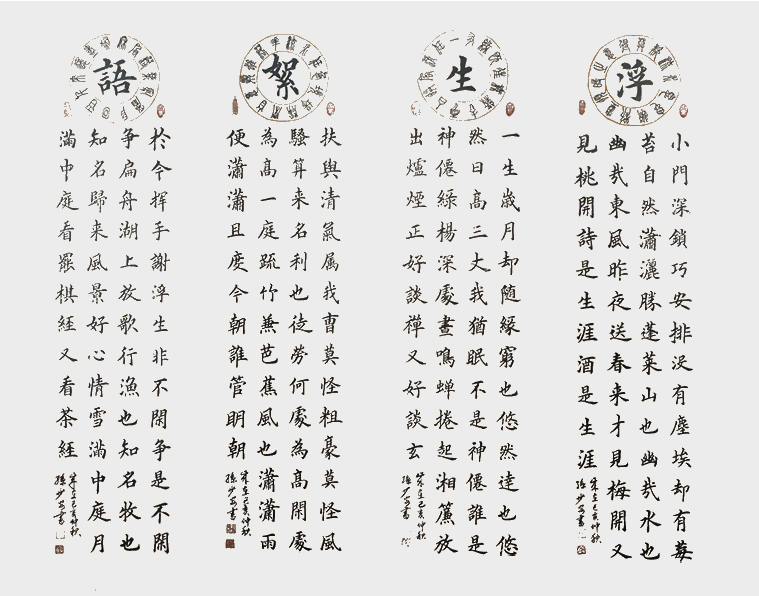 浮
小門深鎖巧安排沒有塵埃却有莓
苔自然瀟灑勝蓬萊山也幽哉水也
幽哉東風昨夜送春来才見梅開又
見桃開詩是生涯酒是生涯
歲在己亥仲秋
生
一生歲月却随緣窮也悠然達也悠
然日高三丈我猶眠不是神僊誰是
神僊綠楊深處晝鳴蝉捲起湘簾放
出爐煙正好談禪又好談玄
歲在己亥仲秋
絮
扶與清氣属我曹莫怪粗豪莫怪風
騷算来名利也徒勞何處為高閒處
為高一庭疏竹兼芭蕉風也瀟瀟雨
便瀟瀟且度今朝誰管明朝
歲在己亥仲秋
語
於今揮手謝浮生非不閒争是不閒
争扁舟湖上放歌行漁也知名牧也
知名歸来風景好心情雪滿中庭月
滿中庭看罷棋經又看茶經
歲在己亥仲秋